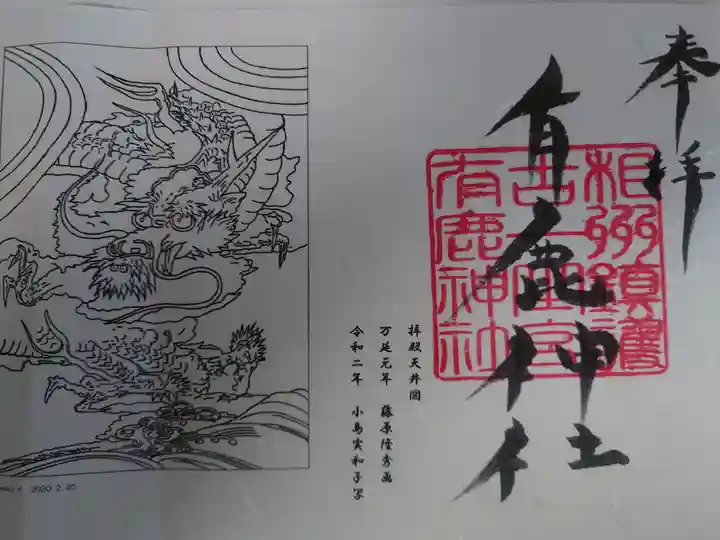 奉拝
有鹿神社
相州鎮護
有鹿神社
拝殿天井図
万延元年 藤原隆秀画
令和二年 小島実和子写
2020.2.20